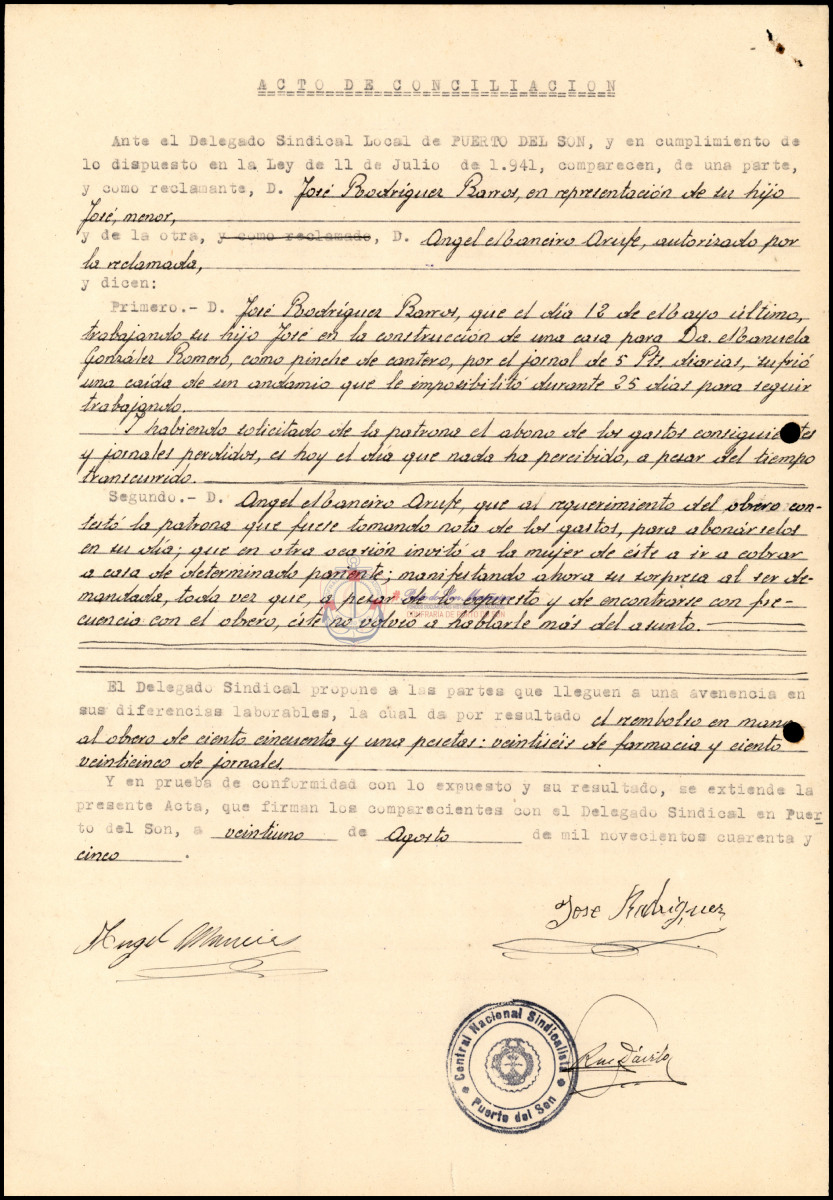 ACTO DE CONCILIACION
Ante el Delegado Sindical Local de PUERTO DEL SON, y en cumplimiento de
lo dispuesto en la Ley de 11 de Julio de 1.941, comparecen, de una parte,
y como reclamante, D. José Rodríguez Barros, en representación de su hijo
José, menor,
y de la otra, y como reclamado, D. Angel Manciro Arufe, autorizado por
la reclamada,
y dicen:
Primero.- D. José Rodríguez Barros, que el día 12 de Mayo último,
trabajando su hijo José en la construcción de una casa para Da. Manuela
González Romero, como pinche de cantero, por el jornal de 5 Pts. diarias, sufrió
una caída de un andamio que le imposibilitó durante 25 días para seguir
trabajando.
Y habiendo solicitado de la patrona el abono de los gastos consiguientes
y jornales perdidos, es hoy el día que nada ha percibido, a pesar del tiempo
transcurrido.
Segundo.- D. Angel Manciro Arufe, que al requerimiento del obrero con-
testó la patrona que fuese tomando nota de los gastos, para abonárselos
en su día; que en otra ocasión invitó a la mujer de éste a ir a cobrar
a casa de determinado pariente; manifestando ahora su sorpresa al ser de-
mandada, toda vez que, a pesar de lo expuesto y de encontrarse con fre-
cuencia con el obrero, éste no volvió a hablarle más del asunto.-
El Delegado Sindical propone a las partes que lleguen a una avenencia en
sus diferencias laborables, la cual da por resultado el rembolso en mano
al obrero de ciento cincuenta y una pesetas: veintiséis de farmacia y ciento
veinticinco de jornales.
Y en prueba de conformidad con lo expuesto y su resultado, se extiende la
presente Acta, que firman los comparecientes con el Delegado Sindical en Puer
to del Son, a veintiuno de Agosto de mil novecientos cuarenta y
cinco.
Jose Rodriguez
Angel
Central Nacional Sindicalista
Puerto del Son